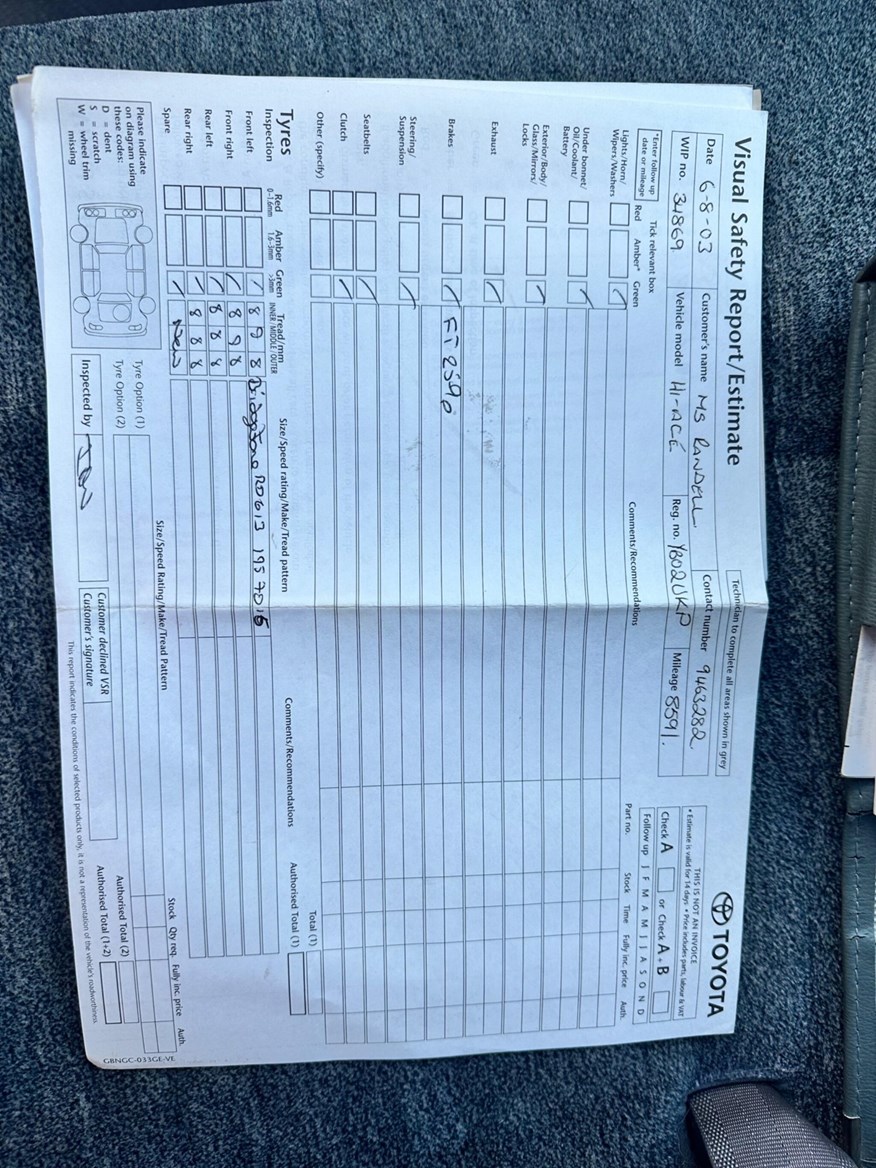 Visual Safety Report/Estimate
Technician to complete all areas shown in grey
TOYOTA
Date 6-8-03 Customer's name MS RANDELL Contact number 9463282
WIP no. 34869 Vehicle model HI-ACE Reg. no. YB02UKP Mileage 8591.
THIS IS NOT AN INVOICE
• Estimate is valid for 14 days • Price includes parts, labour & VAT
Check A or Check A + B
Follow up J F M A M J J A S O N D
*Enter follow up date or mileage
Tick relevant box
Red Amber* Green
Comments/Recommendations
Part no. Stock Time Fully inc. price Auth.
Lights/Horn/
Wipers/Washers
Under bonnet/
Oil/Coolant/
Battery
Exterior/Body/
Glass/Mirrors/
Locks
Exhaust
Brakes FT 2590
Steering/
Suspension
Seatbelts
Clutch
Other (specify)
Total (1)
Tyres
Inspection
Red
0-1.6mm
Amber
1.6-3mm
Green
>3mm
Tread/mm
INNER/MIDDLE/OUTER
Size/Speed rating/Make/Tread pattern
Comments/Recommendations
Authorised Total (1)
Front left 8 9 8 Bridgestone RD613 195 7015
Front right 8 9 8
Rear left 8 8 8
Rear right 8 8 8
Spare New
Size/Speed Rating/Make/Tread Pattern
Stock Qty req. Fully inc. price Auth.
Please indicate
on diagram using
these codes:
D = dent
S = scratch
W = wheel trim
missing
Tyre Option (1)
Tyre Option (2)
Authorised Total (2)
Inspected by
Customer declined VSR
Customer's signature
Authorised Total (1+2)
This report indicates the conditions of selected products only, it is not a representation of the vehicle's roadworthiness
GBNGC-033GE-VE